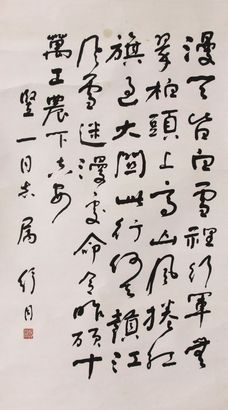 漫天皆白雪裡行軍無
翠柏頭上高山風捲紅
旗過大關此行何去贛江
風雪迷漫處命令昨頒十
萬工農下吉安
豎一同志屬 舒同